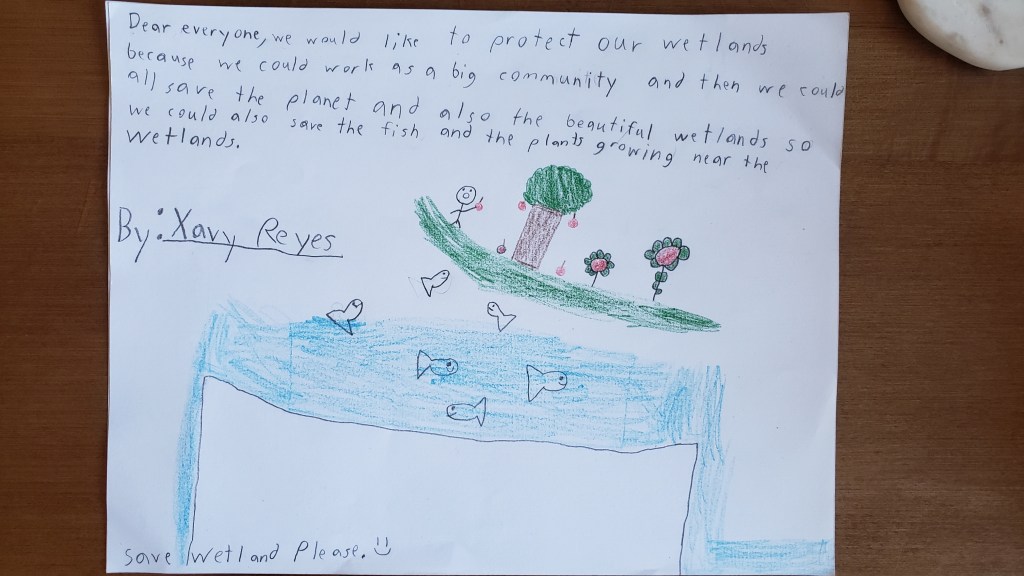 Dear everyone, we would like to protect our wetlands
because we could work as a big community and then we could
all save the planet and also the beautiful wetlands so
we could also save the fish and the plants growing near the
wetlands.
By: Xavy Reyes
save wetland Please. :)